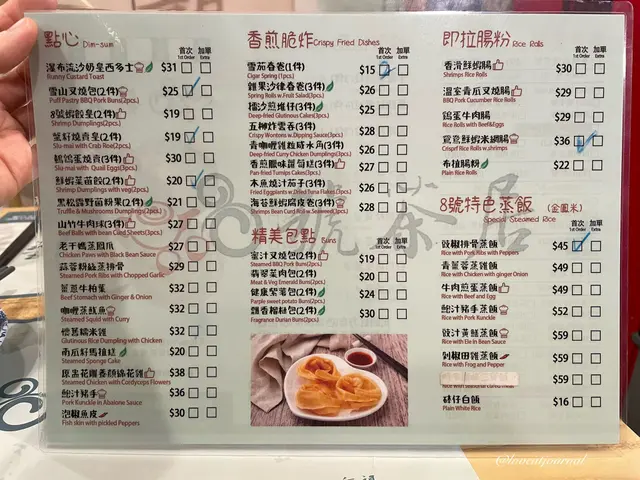 點心 Dim-sum
首次 加單
1st Order Extra
瀑布流沙奶皇西多士 $31
Runny Custard Toast
雪山叉燒包(2件) $25
Puff Pastry BBQ Pork Buns(2pcs.)
8號蝦餃皇(2件) $19
Shrimp Dumplings(2pcs.)
蟹籽燒賣(2件) $19
Siu-mai with Crab Roe(2pcs.)
鵪鶉蛋燒賣(3件) $30
Siu-mai with Quail Eggs(3pcs.)
鮮蝦菜苗餃(2件) $20
Shrimp Dumplings with vegs(2pcs.)
黑松露野菌粉果(2件) $21
Truffle & Mushrooms Dumplings(2pcs.)
山竹牛肉球(3件) $27
Beef Balls with bean curd Sheets(3pcs.)
老干媽蒸鳳爪 $27
Chicken Paws with Black Bean Sauce
蒜蓉粉絲蒸排骨 $29
Steamed Pork Ribs with Chopped Garlic
薑蔥牛柏葉 $32
Beef Stomach with Ginger & Onion
咖喱蒸魷魚 $32
Steamed Squid with Curry
懷舊糯米雞 $32
Glutinous Rice Dumpling with Chicken
南瓜籽馬拉糕 $20
Steamed Sponge Cake
$38
Steamed Chicken with Cordyceps Flowers
鮑汁豬手 $36
Pork Kunckle in Abalone Sauce
泡椒魚皮 $30
Fish skin with pickled Peppers
香煎脆炸 Crispy Fried Dishes
首次 加單
1st Order Extra
雪茄春卷(1件) $15
Cigar Spring (1pc.)
雜果沙律春卷(3件) $26
Spring Rolls w.Fruit Salad(3pcs.)
擂沙煎堆仔(3件) $25
Deep-fried Glutinous Cakes(3pcs.)
五柳炸雲吞(3件) $28
Crispy Wontons w.Dipping Sauce(3pcs.)
青咖喱雞粒咸水角(3件) $26
Deep-fried Curry Chicken Dumplings(3pcs.)
香煎臘味蘿蔔糕(3件) $27
Pan-fried Turnips Cakes(3pcs.)
木魚燒汁茄子(3件) $26
Fried Eggplants w.Dried Tuna Flakes (3pcs.)
海苔鮮蝦腐皮卷(3件) $28
Shrimps Bean Curd Roll w.Seaweed(3pcs.)
精美包點 Buns
首次 加單
1st Order Extra
蜜汁叉燒包(2件) $19
Steamed BBQ Pork Buns(2pcs.)
翡翠菜肉包(2件) $20
Meat & Veg Emerald Buns(2pcs.)
健康紫薯包(2件) $24
Purple sweet potato Buns(2pcs.)
飄香榴槤包(2件) $30
Fragrance Durian Buns(2pcs.)
即拉腸粉 Rice Rolls
首次 加單
1st Order Extra
香滑鮮蝦腸 $30
Shrimps Rice Rolls
溫室青瓜叉燒腸 $29
BBQ Pork Cucumber Rice Rolls
鷄蛋牛肉腸 $29
Rice Rolls with Beef&Eggs
鴛鴦鮮蝦米網腸 $36
Crispf Rice Rolls w.shrimps
布拉腸粉 $22
Plain Rice Rolls
8號特色蒸飯 (金鳳米)
Special Steamed Rice
首次 加單
1st Order Extra
豉椒排骨蒸飯 $45
Rice with Pork Ribs with Peppers
青薑蓉蒸雞飯 $49
Rice with Chicken with ginger Onion
牛肉煎蛋蒸飯 $49
Rice with Beef and Egg
鮑汁豬手蒸飯 $52
Rice with Pork Kunckle
豉汁黃鱔蒸飯 $59
Rice with Ele in Bean Sauce
剁椒田雞蒸飯 $59
Rice with Frog and Pepper
$59
磚仔白飯 $16
Plain White Rice
號茶居